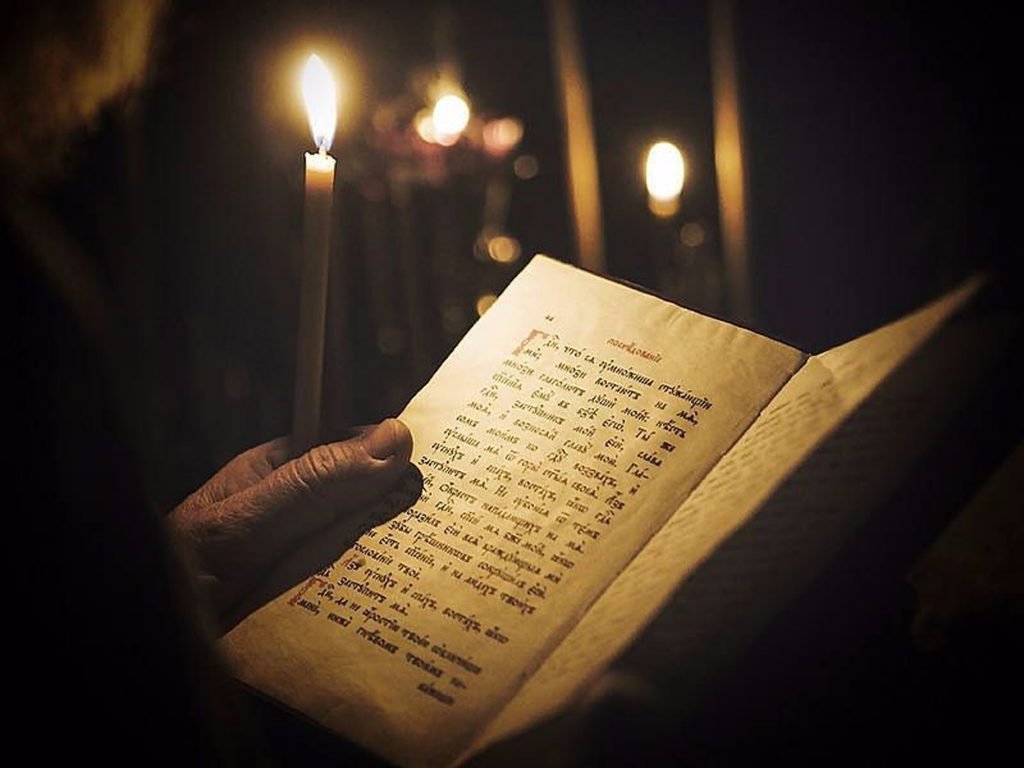 послѣ́дованїе
Гдⷭ҇и, что̀ сѧ ᲂу҆мно́жиша стꙋжа́ющїи
мѝ; мно́зи востаю́тъ на мѧ̀,
мно́зи глаго́лютъ дꙋшѝ мое́й: нѣ́сть
спⷭ҇нїѧ є҆мꙋ̀ въ бз҃ѣ є҆гѡ̀. Ты́ же
гдⷭ҇и, застꙋ́пникъ мо́й є҆сѝ, сла́ва
моѧ̀, и҆ вознося́й главꙋ̀ мою̀. Гла́-
сомъ мои́мъ ко гдⷭ҇ꙋ воззва́хъ, и҆
ᲂу҆слы́ша мѧ̀ ѿ горы̀ ст҃ы́ѧ своеѧ̀. А҆́зъ
ᲂу҆снꙋ́хъ и҆ спа́хъ, воста́хъ, ꙗ҆́кѡ гдⷭ҇ь
застꙋ́питъ мѧ̀. Не ᲂу҆бою́сѧ ѿ те́мъ
ѡ҆́крестъ напа́дающихъ на мѧ̀.
гдⷭ҇и, спасѝ мѧ̀ бж҃е мо́й, ꙗ҆́кѡ
порази́лъ є҆сѝ всѧ̑ враждꙋ́ющыѧ мѝ
зꙋ́бы грѣ́шникѡвъ сокрꙋши́лъ є҆сѝ.
є҆́сть спⷭ҇нїе, и҆ на лю́дехъ твои́хъ
твоѐ.
А҆́зъ ᲂу҆снꙋ́хъ и҆ спа́хъ, воста́хъ, ꙗ҆́кѡ
застꙋ́питъ мѧ̀.
Гдⷭ҇и, да не ꙗ҆́ростїю твое́ю ѡ҆бличи́ши
менѐ, нижѐ гнѣ́вомъ твои́мъ на-
ка́жеши